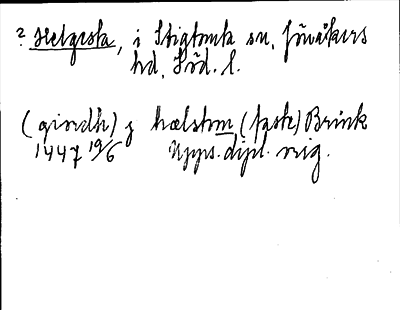 ? Helgesta, i Stigtomta sn, Jönåkers
hd, Söd. l.
(giordh) j hælstom, (faste) Brink
1447 19/6 Upps. dipl. orig.